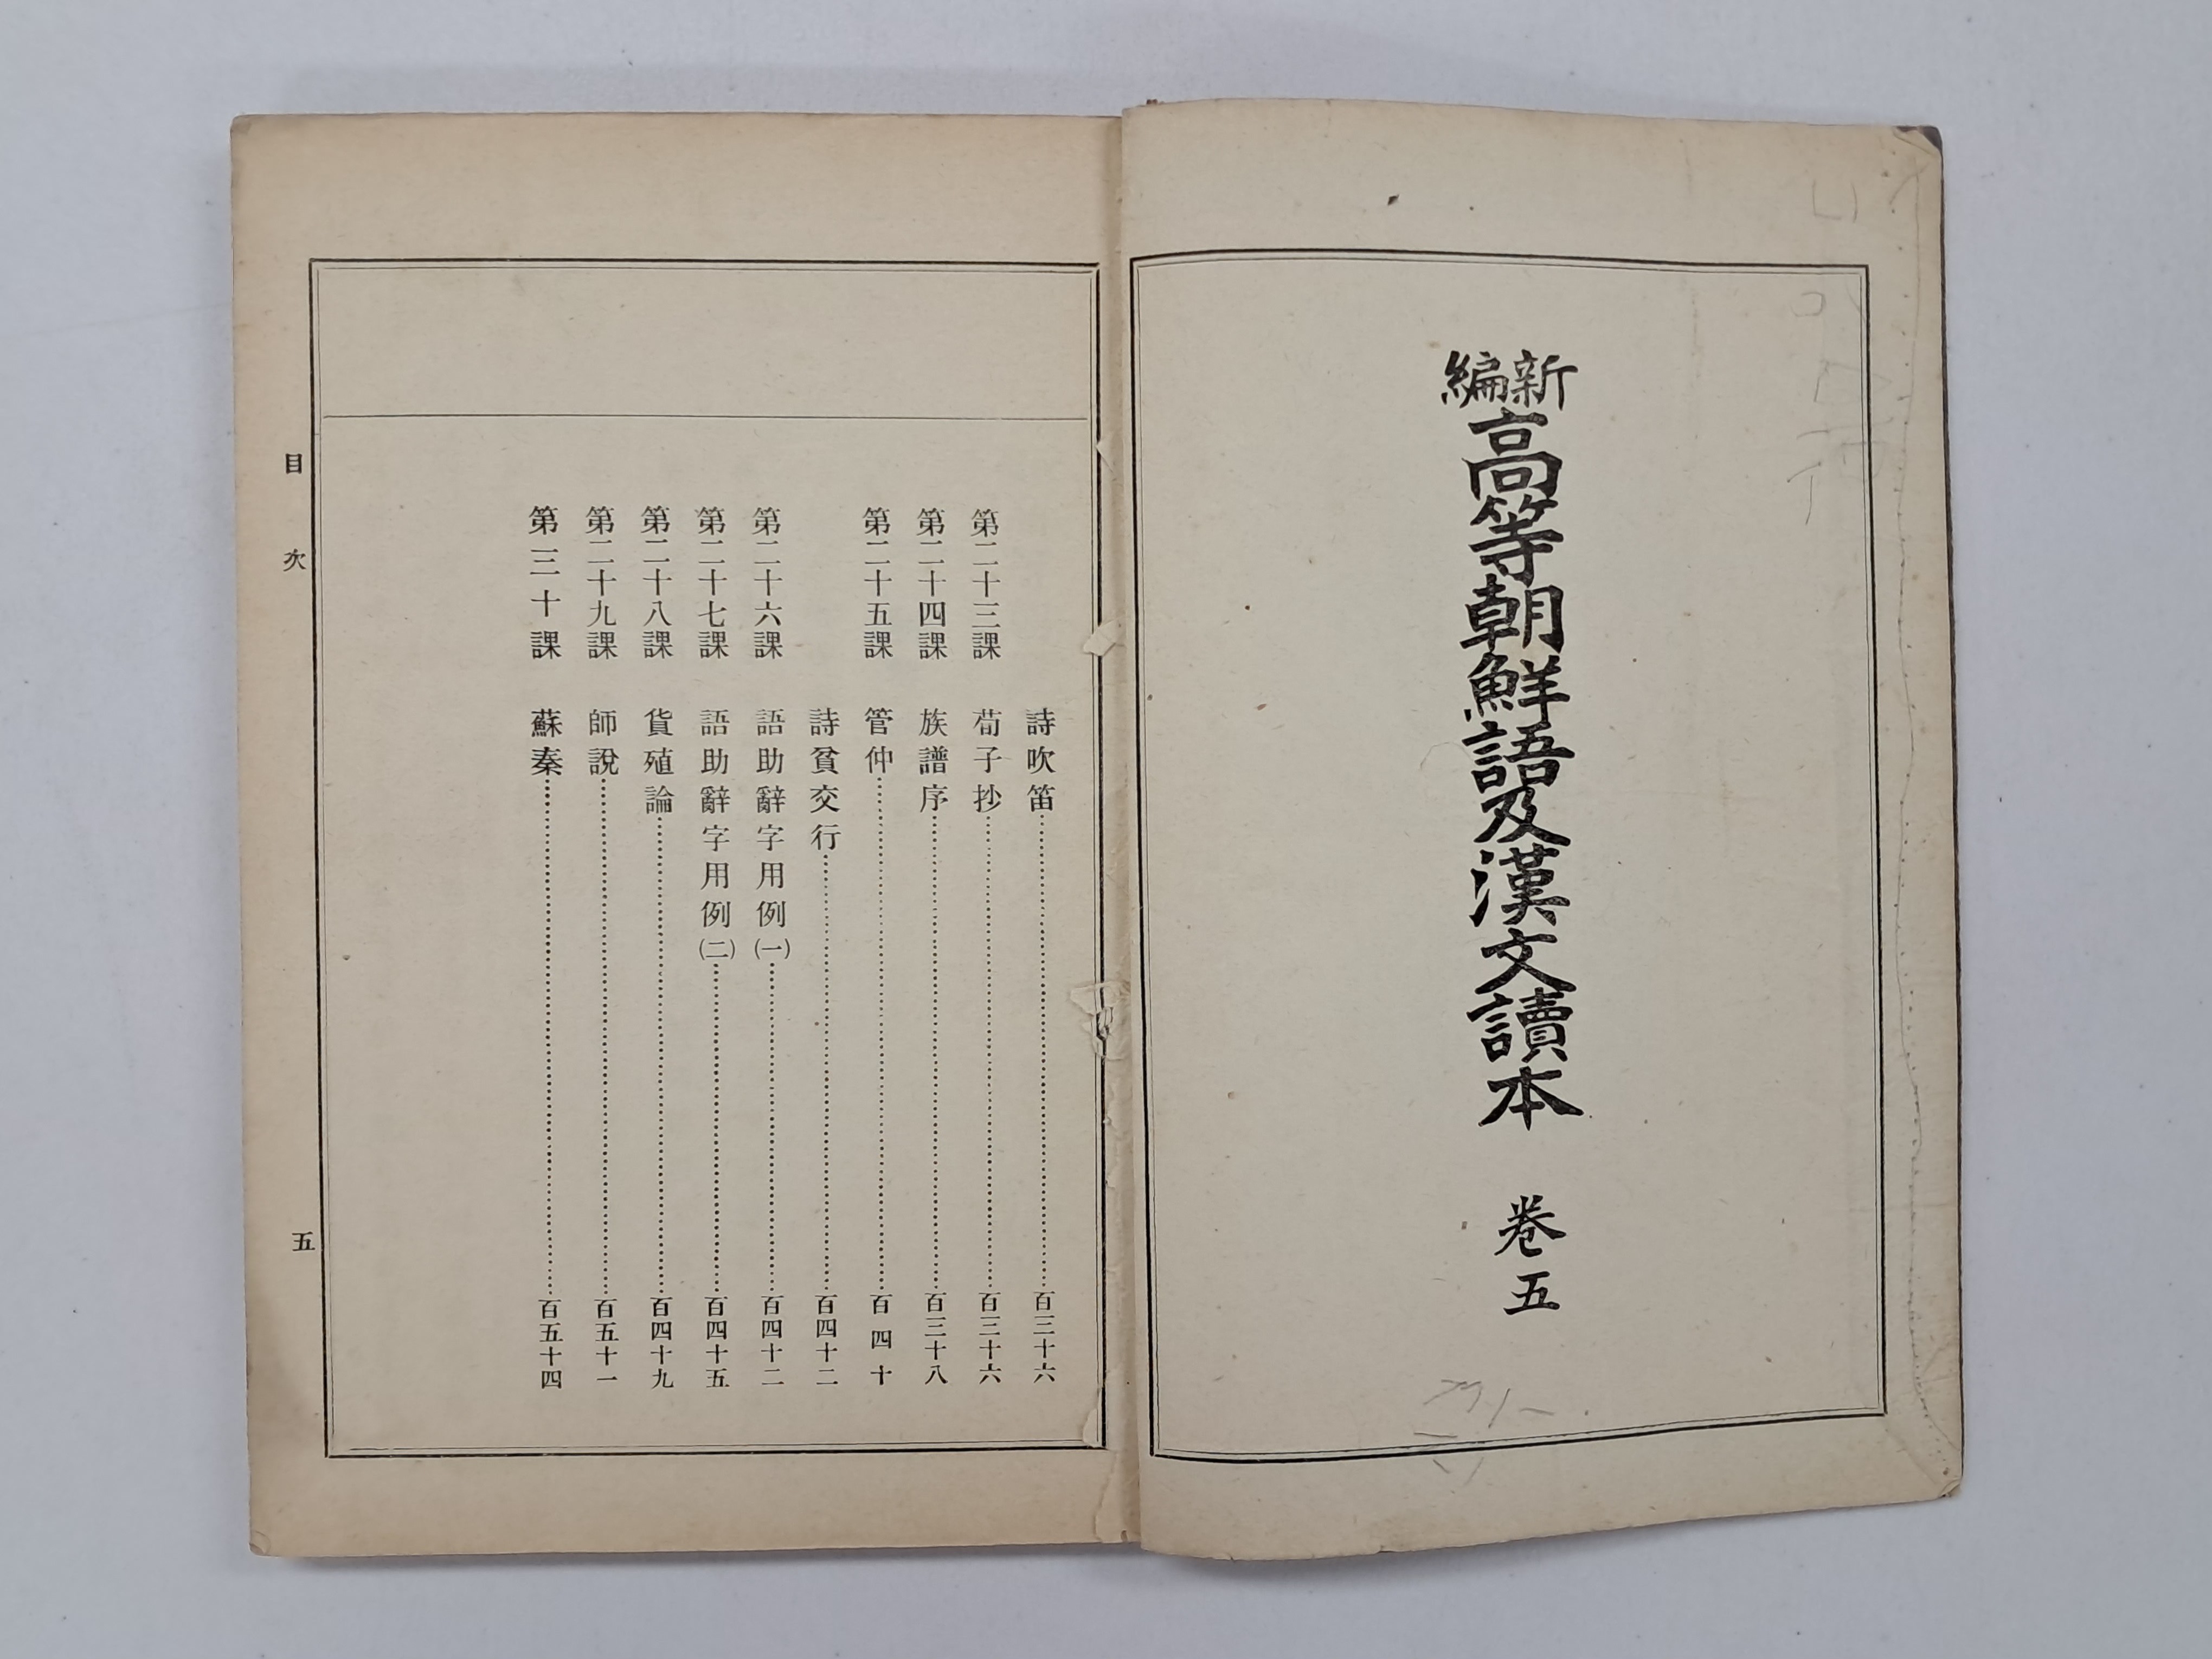 新編
高等朝鮮語及漢文讀本 卷五
詩吹笛 百三十六
第二十三課 荀子抄 百三十六
第二十四課 族譜序 百三十八
第二十五課 管仲 百四十
詩貧交行 百四十二
第二十六課 語助辭字用例(一) 百四十二
第二十七課 語助辭字用例(二) 百四十五
第二十八課 貨殖論 百四十九
第二十九課 師說 百五十一
第三十課 蘇秦 百五十四
目次 五